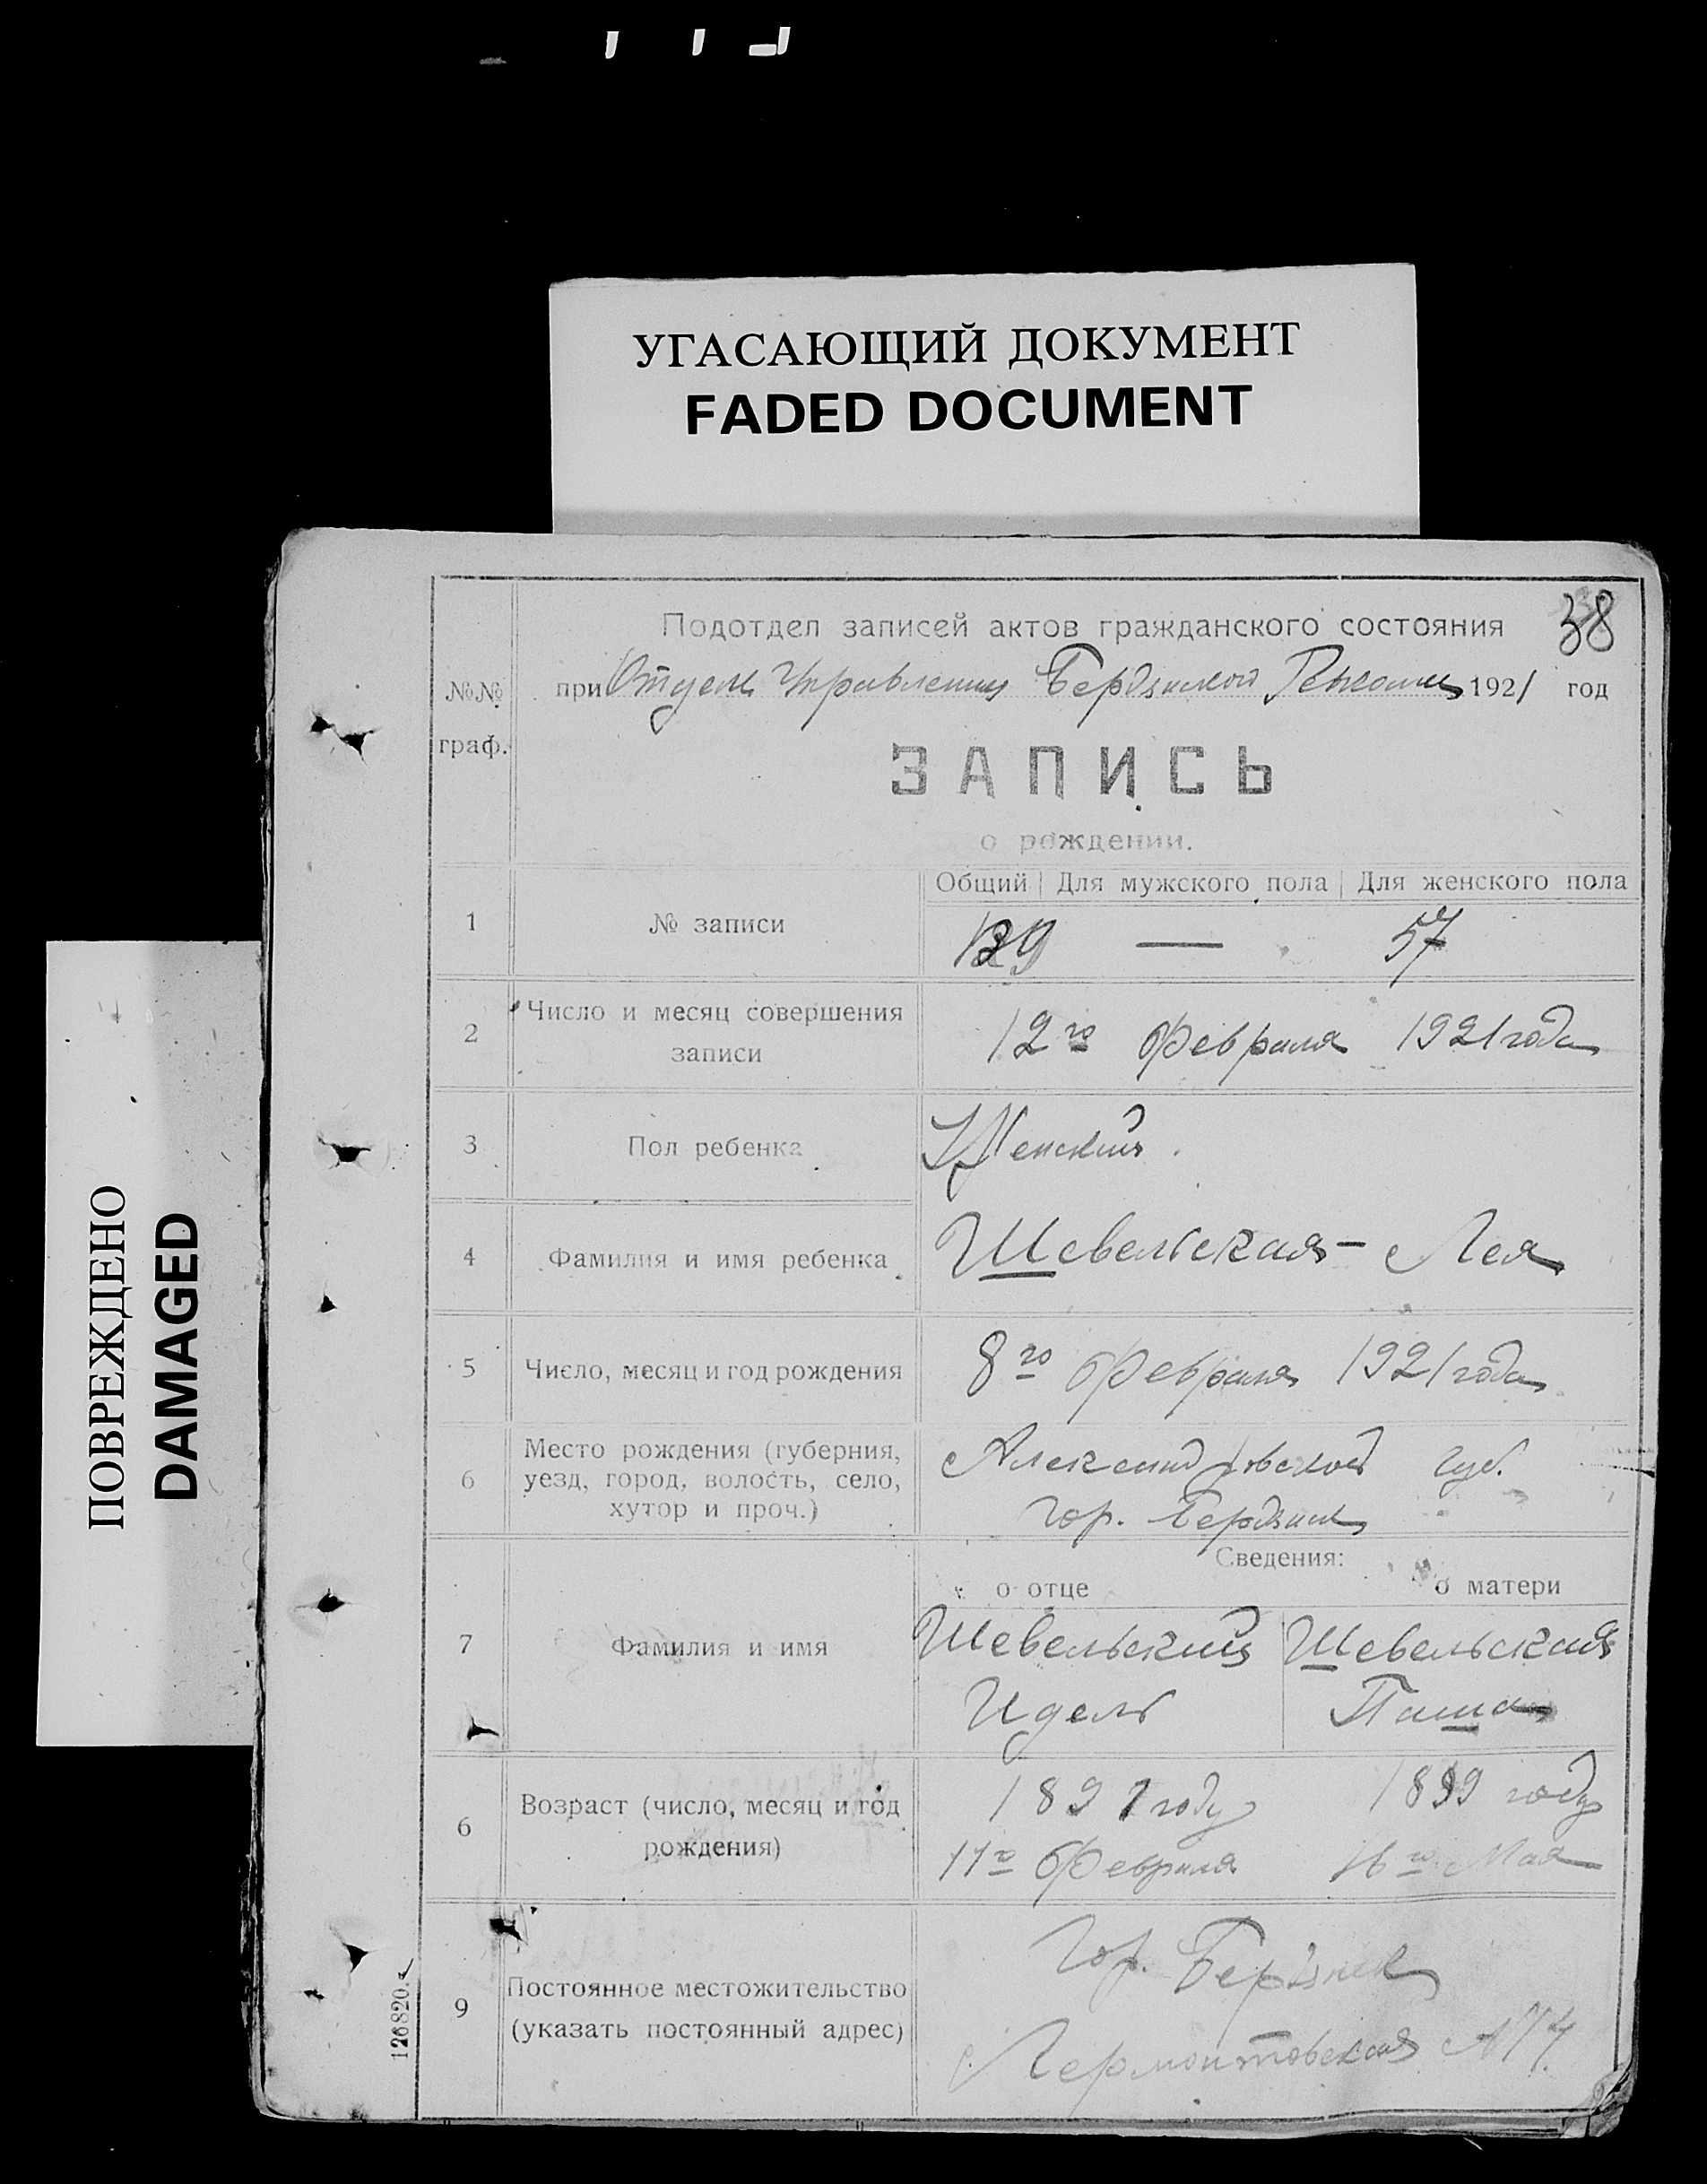 УГАСАЮЩИЙ ДОКУМЕНТ
FADED DOCUMENT
ПОВРЕЖДЕНО
DAMAGED
38
Подотдел записей актов гражданского состояния
№№ граф.
при Отделе Управления Бердянской Ревкома 1921 год
ЗАПИСЬ
о рождении.
Общий | Для мужского пола | Для женского пола
1 № записи 139 — 57
2 Число и месяц совершения записи 12го Февраля 1921 года
3 Пол ребенка Женский
4 Фамилия и имя ребенка Шевельская - Лея
5 Число, месяц и год рождения 8го Февраля 1921 года
6 Место рождения (губерния, уезд, город, волость, село, хутор и проч.) Александровской губ.
гор. Бердянск
Сведения:
о отце о матери
7 Фамилия и имя Шевельский Шевельская
Идель Паша
6 Возраст (число, месяц и год рождения) 1897 году 1899 году
11го Февраля 16го Мая
9 Постоянное местожительство (указать постоянный адрес) Гор. Бердянск
Лермонтовская
126820